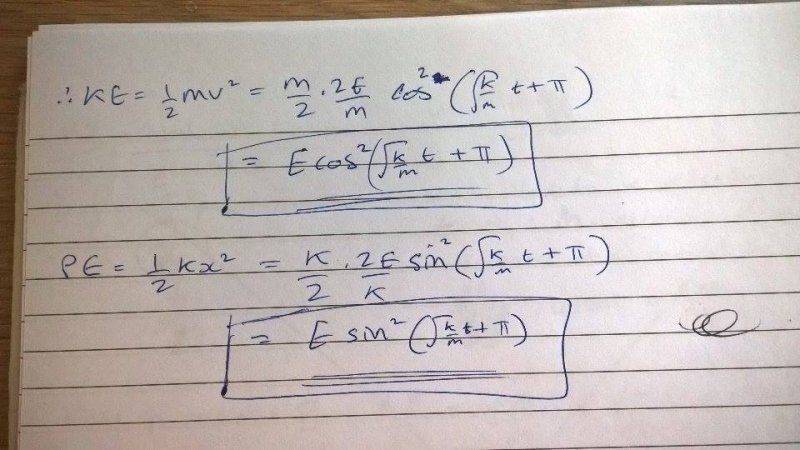 ∴ KE = 1/2 mv² = m/2 . 2E/m cos² (√(k/m) t + π)
= E cos² (√(k/m) t + π)
PE = 1/2 kx² = K/2 . 2E/K sin² (√(k/m) t + π)
= E sin² (√(k/m) t + π)